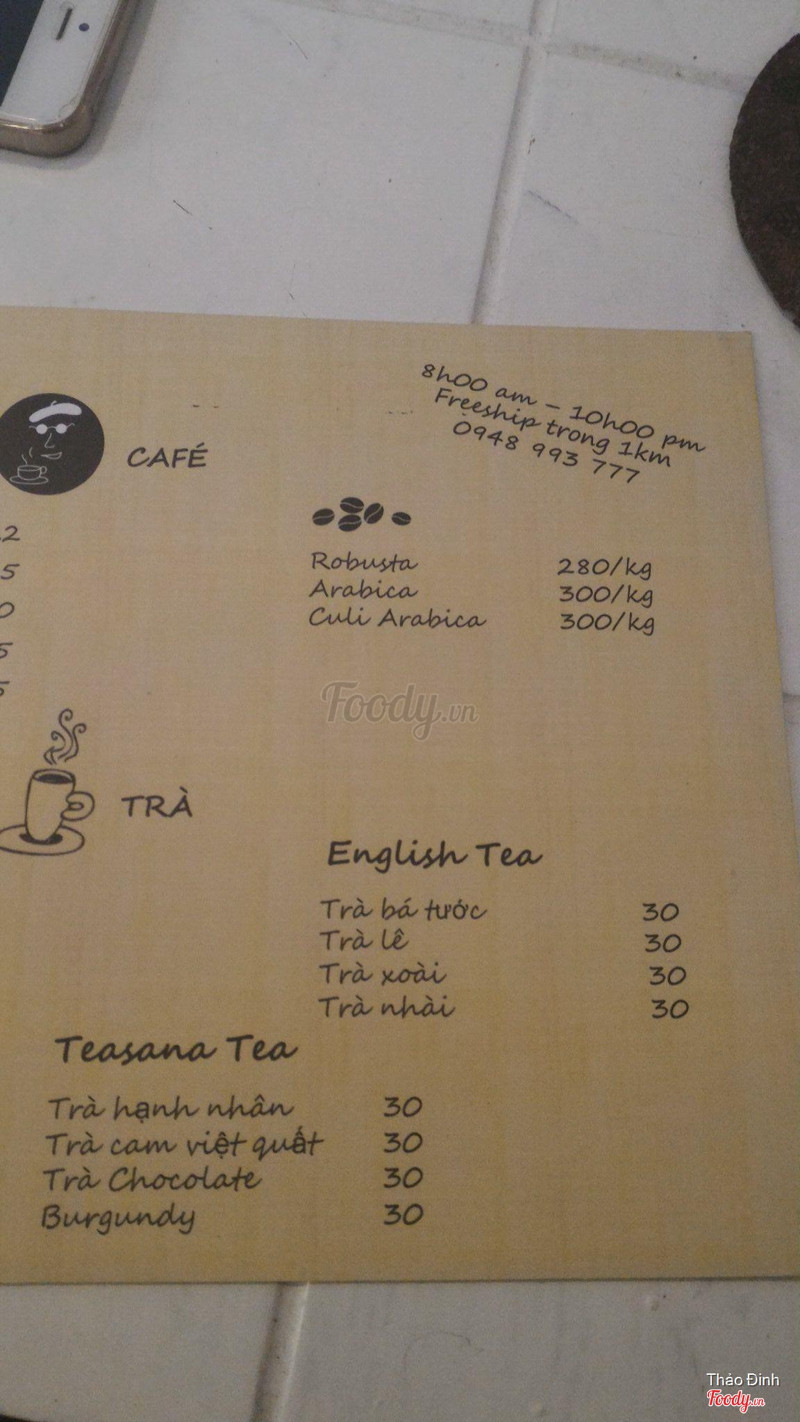 8h00 am – 10h00 pm
Freeship trong 1km
0948 993 777
CAFÉ
Robusta 280/kg
Arabica 300/kg
Culi Arabica 300/kg
2
5
0
5
5
Foody.vn
TRÀ
English Tea
Trà bá tước 30
Trà lê 30
Trà xoài 30
Trà nhài 30
Teasana Tea
Trà hạnh nhân 30
Trà cam việt quất 30
Trà Chocolate 30
Burgundy 30
Thảo Đinh
Foody.vn